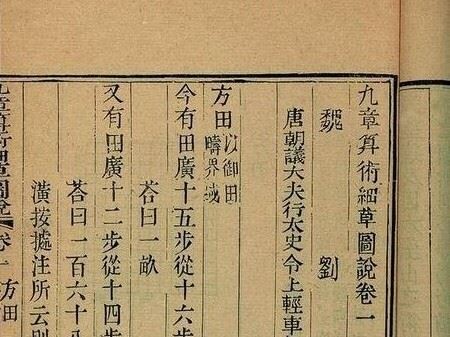 九章算術細草圖說卷一
魏 劉
唐朝議大夫行太史令上輕車
方田以御田疇界域
今有田廣十五步從十六步
荅曰一畝
又有田廣十二步從十四步
荅曰一百六十八
潢按據注所云則
九章算術細草圖說 卷一 方田